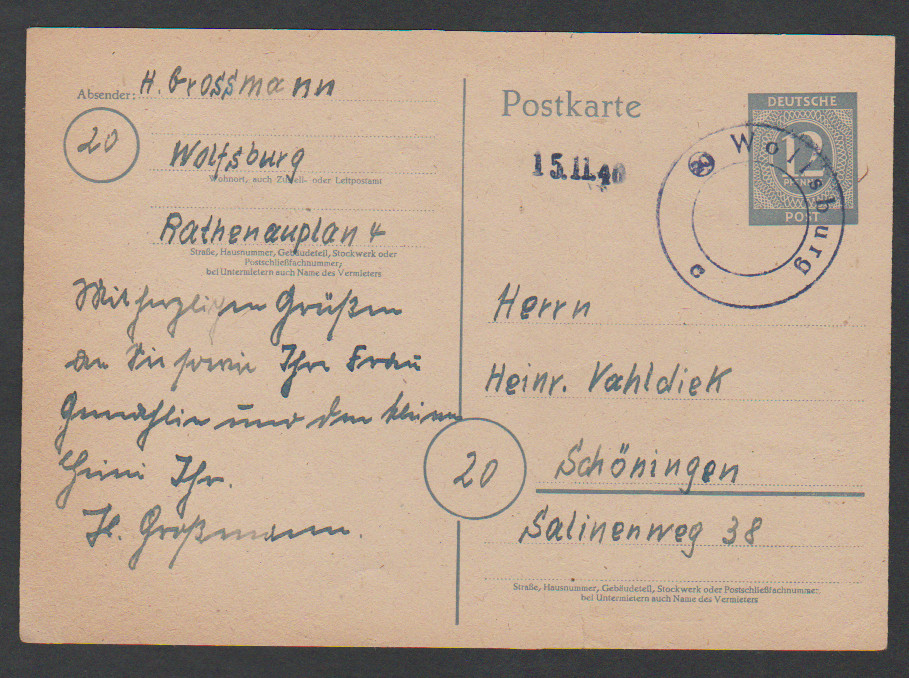 Absender: H. Grossmann
20
Wolfsburg
Wohnort, auch Zustell- oder Leitpostamt
Rathenauplan 4
Straße, Hausnummer, Gebäudeteil, Stockwerk oder
Postschließfachnummer;
bei Untermietern auch Name des Vermieters
Mit herzlichen Grüßen
an Sie sowie Ihre Frau
Gemahlin und den kleinen
Heini Ihr.
H. Großmann.
Postkarte
15.11.46
DEUTSCHE
12
PFENNIG
POST
Wolfsburg
c
Herrn
Heinr. Vahldiek
20
Schöningen
Salinenweg 38
Straße, Hausnummer, Gebäudeteil, Stockwerk oder Postschließfachnummer;
bei Untermietern auch Name des Vermieters